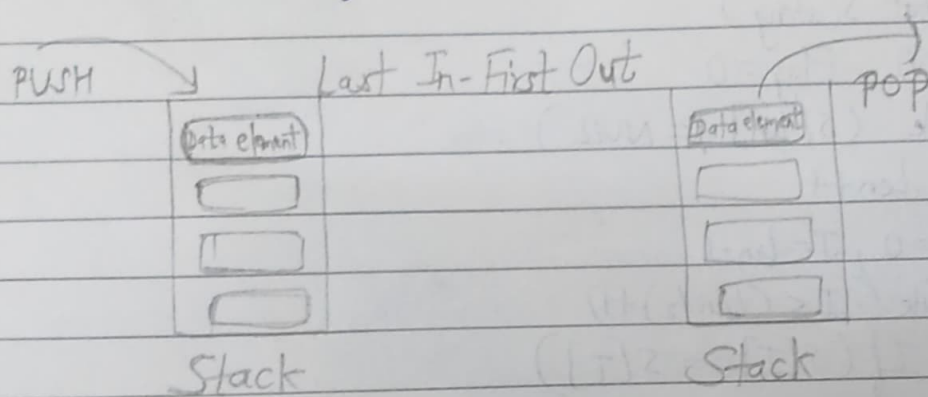 PUSH Last In-First Out POP
Data element Data element
Stack Stack